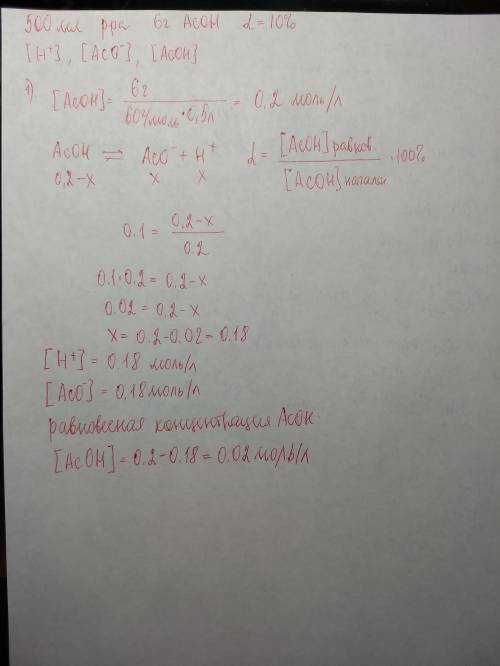 500 мл р-ра 6г AcOH α = 10%
[H⁺], [AcO⁻], [AcOH]
1) [AcOH] = 6г / 60г/моль · 0,5л = 0,2 моль/л
AcOH ⇌ AcO⁻ + H⁺ α = [AcOH] равнов. / [AcOH] начальн · 100%
0,2-x x x
0.1 = 0,2-x / 0.2
0.1·0,2 = 0,2-x
0.02 = 0,2-x
x = 0.2-0.02 = 0.18
[H⁺] = 0.18 моль/л
[AcO⁻] = 0,18 моль/л
равновесная концентрация AcOH.
[AcOH] = 0.2-0.18 = 0.02 моль/л